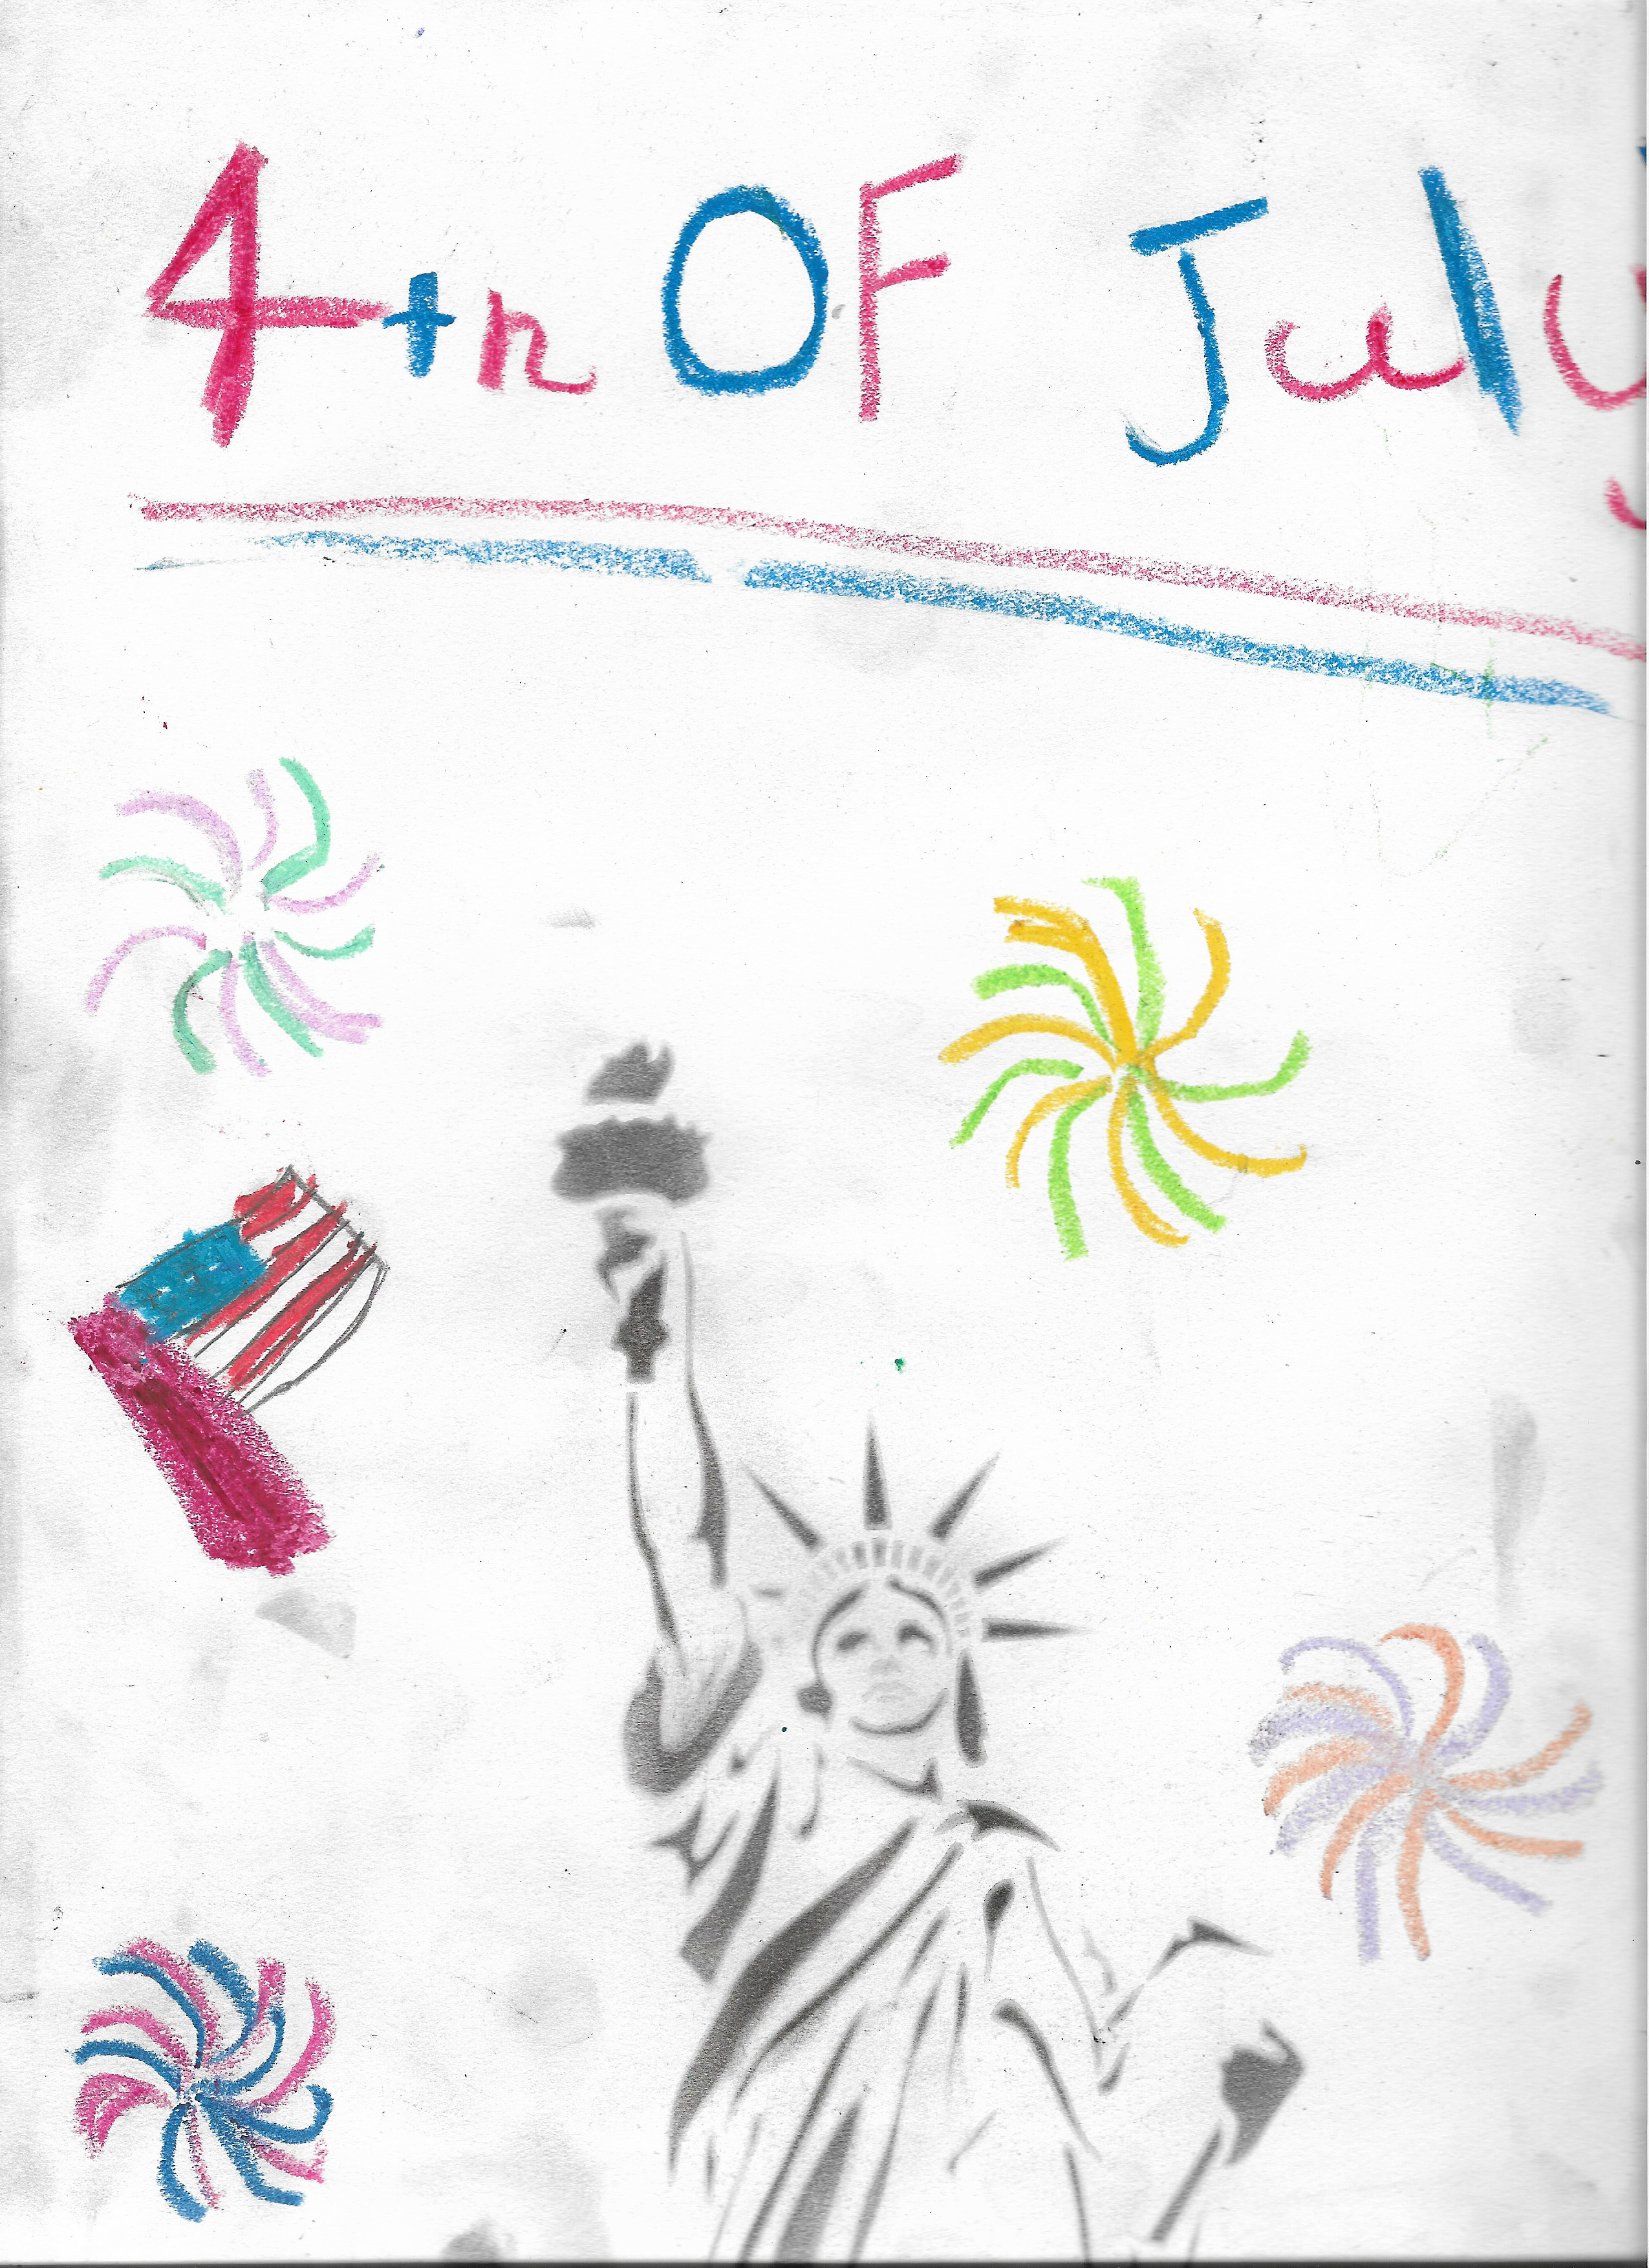 4th OF July